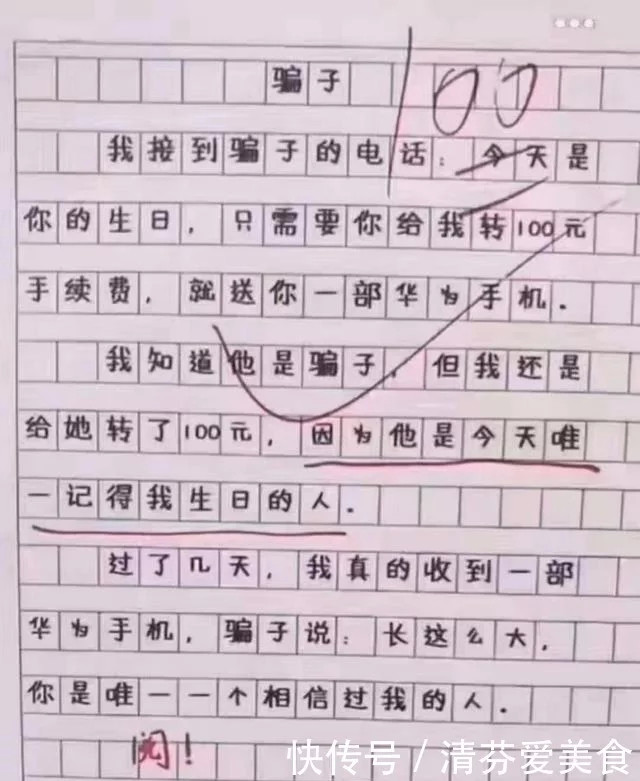 骗子
100
我接到骗子的电话：今天是
你的生日，只需要你给我转100元
手续费，就送你一部华为手机．
我知道他是骗子，但我还是
给她转了100元，因为他是今天唯
一记得我生日的人．
过了几天，我真的收到一部
华为手机，骗子说：长这么大，
你是唯一一个相信过我的人．
阅！
快传号 / 清芬爱美食